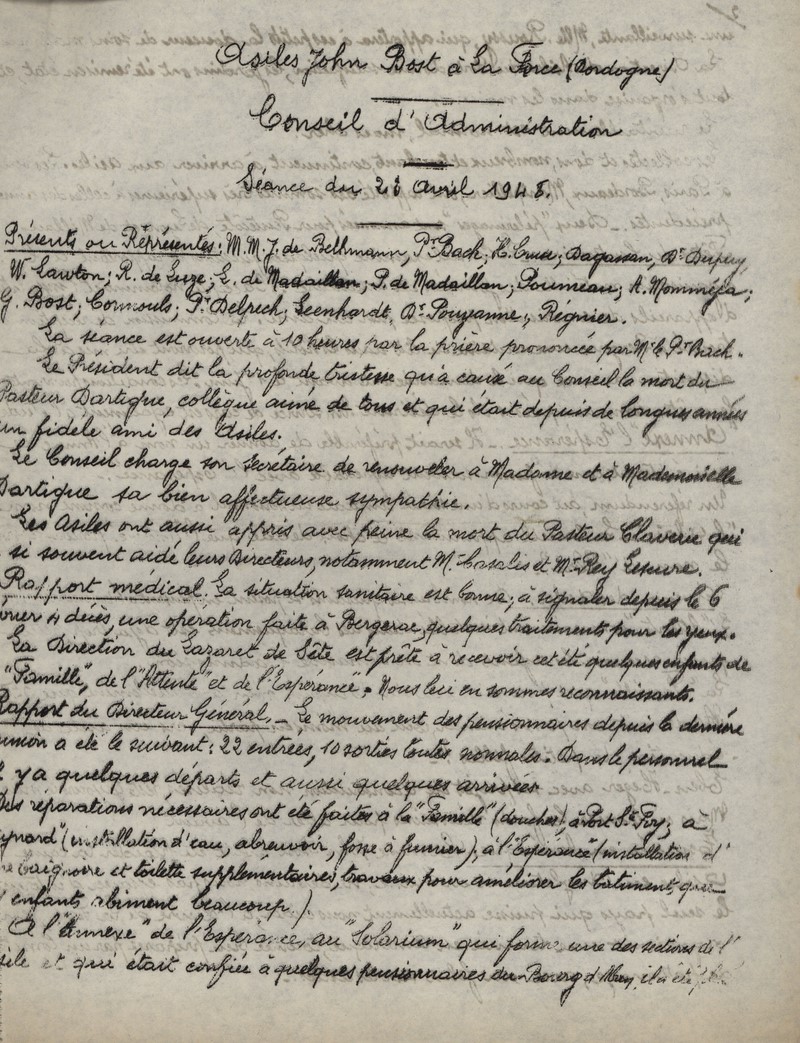 Asiles John Bost à La Force (Dordogne)
Conseil d'Administration
Séance du 23 Avril 1948.
Présents ou Représentés: M.M. J. de Bethmann, Pr Bach; H. Cruse; Dagassan, Dr Dupuy,
W. Lawton; R. de Luze; E. de Madaillan; P. de Madaillan; Poumeau; A. Momméja;
G. Bost; Cormouls; Pr Delpech; Leenhardt, Dr Pouyanne; Régnier.
La séance est ouverte à 10 heures par la prière prononcée par Mr le Pr Bach.
Le Président dit la profonde tristesse qu'a causé au Conseil la mort du
Pasteur Dartigue, collègue aimé de tous et qui était depuis de longues années
un fidèle ami des Asiles.
Le Conseil charge son Secrétaire de renouveler à Madame et à Mademoiselle
Dartigue sa bien affectueuse sympathie.
Les Asiles ont aussi appris avec peine la mort du Pasteur Claverie qui
si souvent aidé leurs Directeurs, notamment M. Casalis et Mr Rey Lescure.
Rapport médical. La situation sanitaire est bonne; à signaler depuis le 6
4 décès, une opération faite à Bergerac, quelques traitements pour les yeux.
La Direction du Lazaret de Sète est prête à recevoir cet été quelques enfants de
"Famille", de l'"Attente" et de l'"Espérance". Nous lui en sommes reconnaissants.
Rapport du Directeur Général. - Le mouvement des pensionnaires depuis la dernière
union a été le suivant: 22 entrées, 10 sorties toutes normales. Dans le personnel
y a quelques départs et aussi quelques arrivées
Des réparations nécessaires ont été faites à la "Famille" (douches), à Port Ste Foy, à
ynard" (installation d'eau, abreuvoir, fosse à fumier), à l'Espérance" (installation d'
baignoire et toilette supplémentaires, travaux pour améliorer les bâtiments que
enfants abiment beaucoup).
A l'"Annexe" de l'Espérance, au "Solarium" qui forme une des sections de l'
sile et qui était confiée à quelques pensionnaires du Bourg d'Abren, il a été